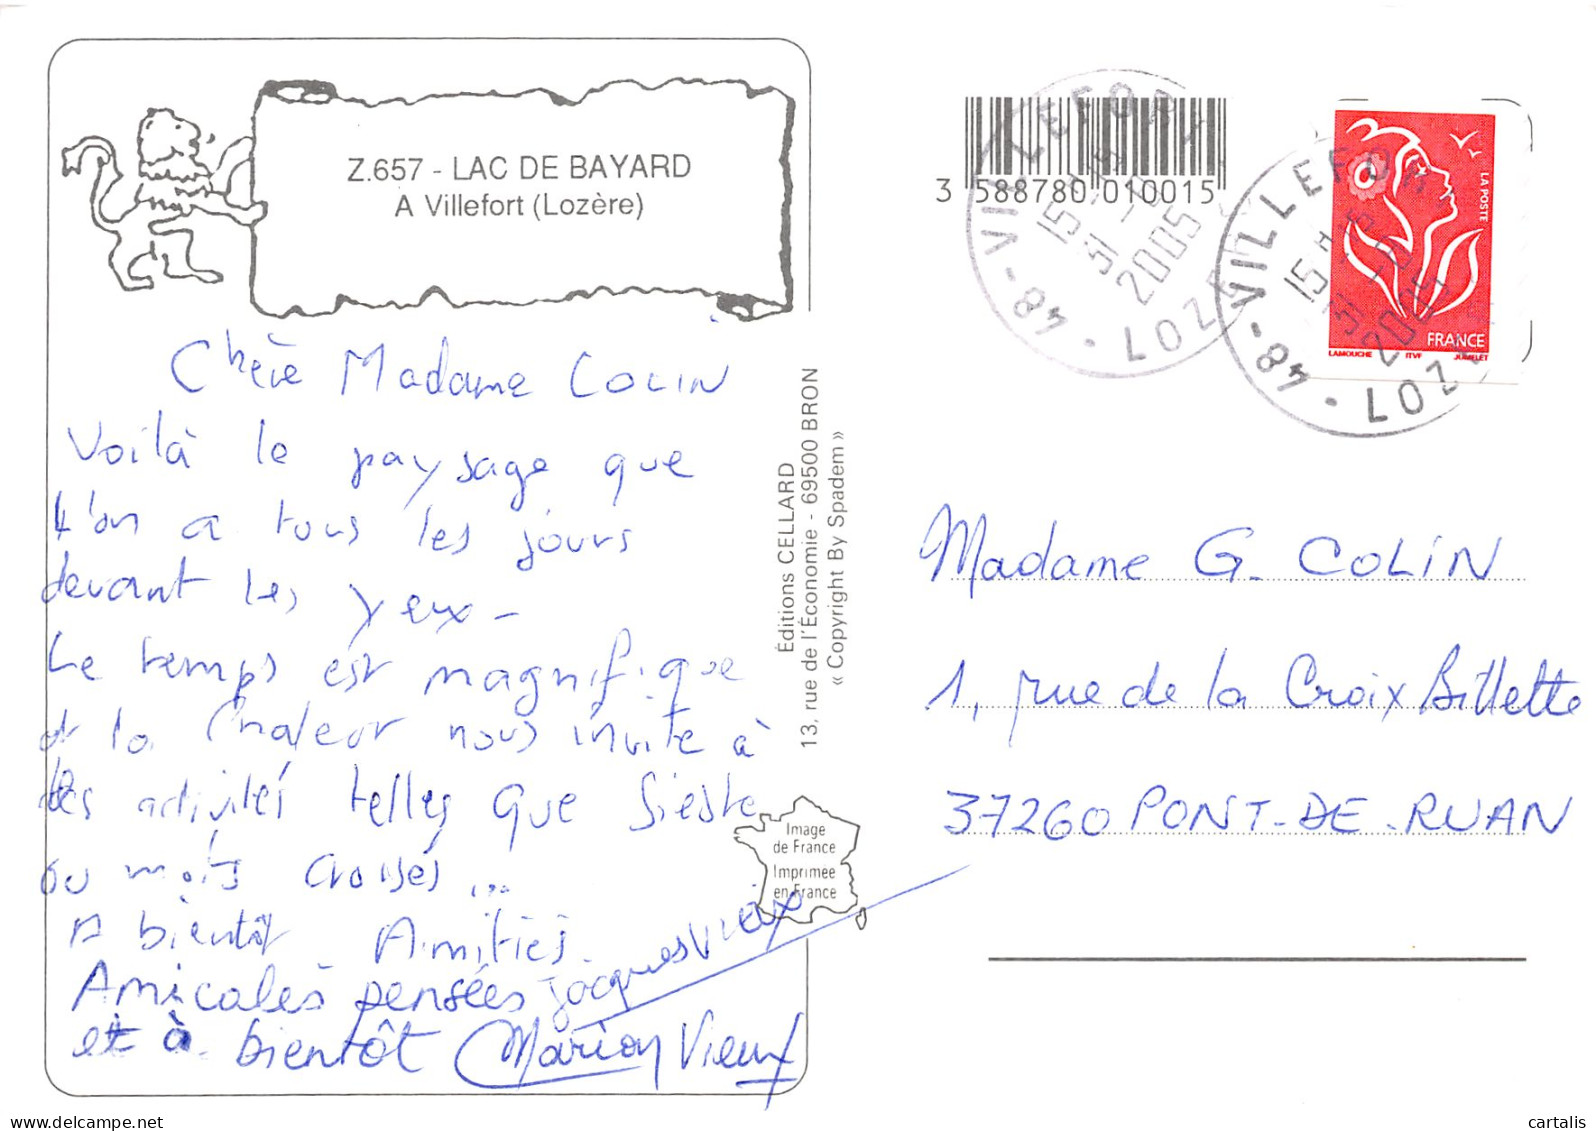 Z.657 - LAC DE BAYARD
A Villefort (Lozère)
Chère Madame COLIN
Voilà le paysage que
l'on a tous les jours
devant les yeux -
Le temps est magnifique
et la chaleur nous invite à
des activités telles que sieste
ou mots croisés ...
A bientôt Amitiés.
Amicales pensées Jacques Vieux
et à bientôt Marion Vieux
Éditions CELLARD
13, rue de l'Économie - 69500 BRON
« Copyright By Spadem »
Image
de France
Imprimée
en France
3 588780 010015
48 - VILLEFORT · LOZE
15
31
2005
48 - VILLEFOR · LOZ
15 H
31
2005
LA POSTE
FRANCE
LAMOUCHE ITVF JUMELET
Madame G. COLIN
1, rue de la Croix Billette
37260 PONT-DE-RUAN
cartalis
delcampe.net